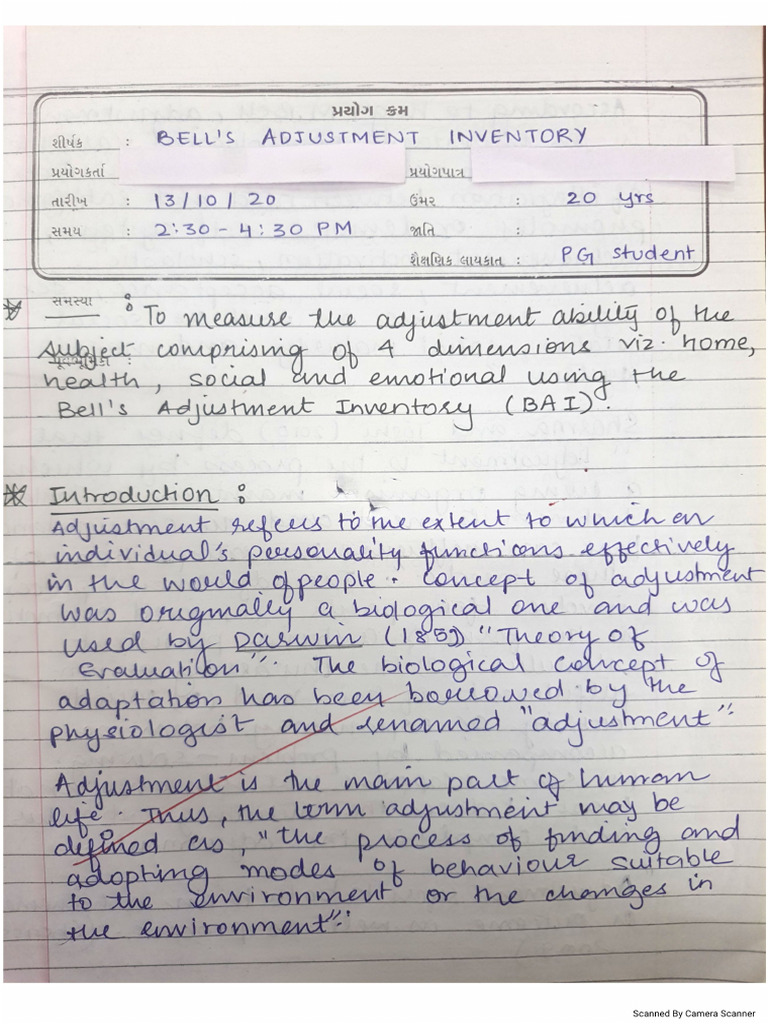 પ્રયોગ ક્રમ
શીર્ષક : BELL'S ADJUSTMENT INVENTORY
પ્રયોગકર્તા પ્રયોગપાત્ર
તારીખ : 13/10/20 ઉંમર : 20 yrs
સમય : 2:30 - 4:30 PM જાતિ :
શૈક્ષણિક લાયકાત : PG Student
સમસ્યા : To measure the adjustment ability of the
subject comprising of 4 dimensions viz. home,
health, social and emotional using the
Bell's Adjustment Inventory (BAI).
Introduction :
Adjustment refers to the extent to which an
individual's personality functions effectively
in the world of people. Concept of adjustment
was originally a biological one and was
used by Darwin (1859) "Theory of
Evaluation". The biological concept of
adaptation has been borrowed by the
physiologist and renamed "adjustment".
Adjustment is the main part of human
life. Thus, the term adjustment may be
defined as, "the process of finding and
adopting modes of behaviour suitable
to the environment or the changes in
the environment".
Scanned By Camera Scanner